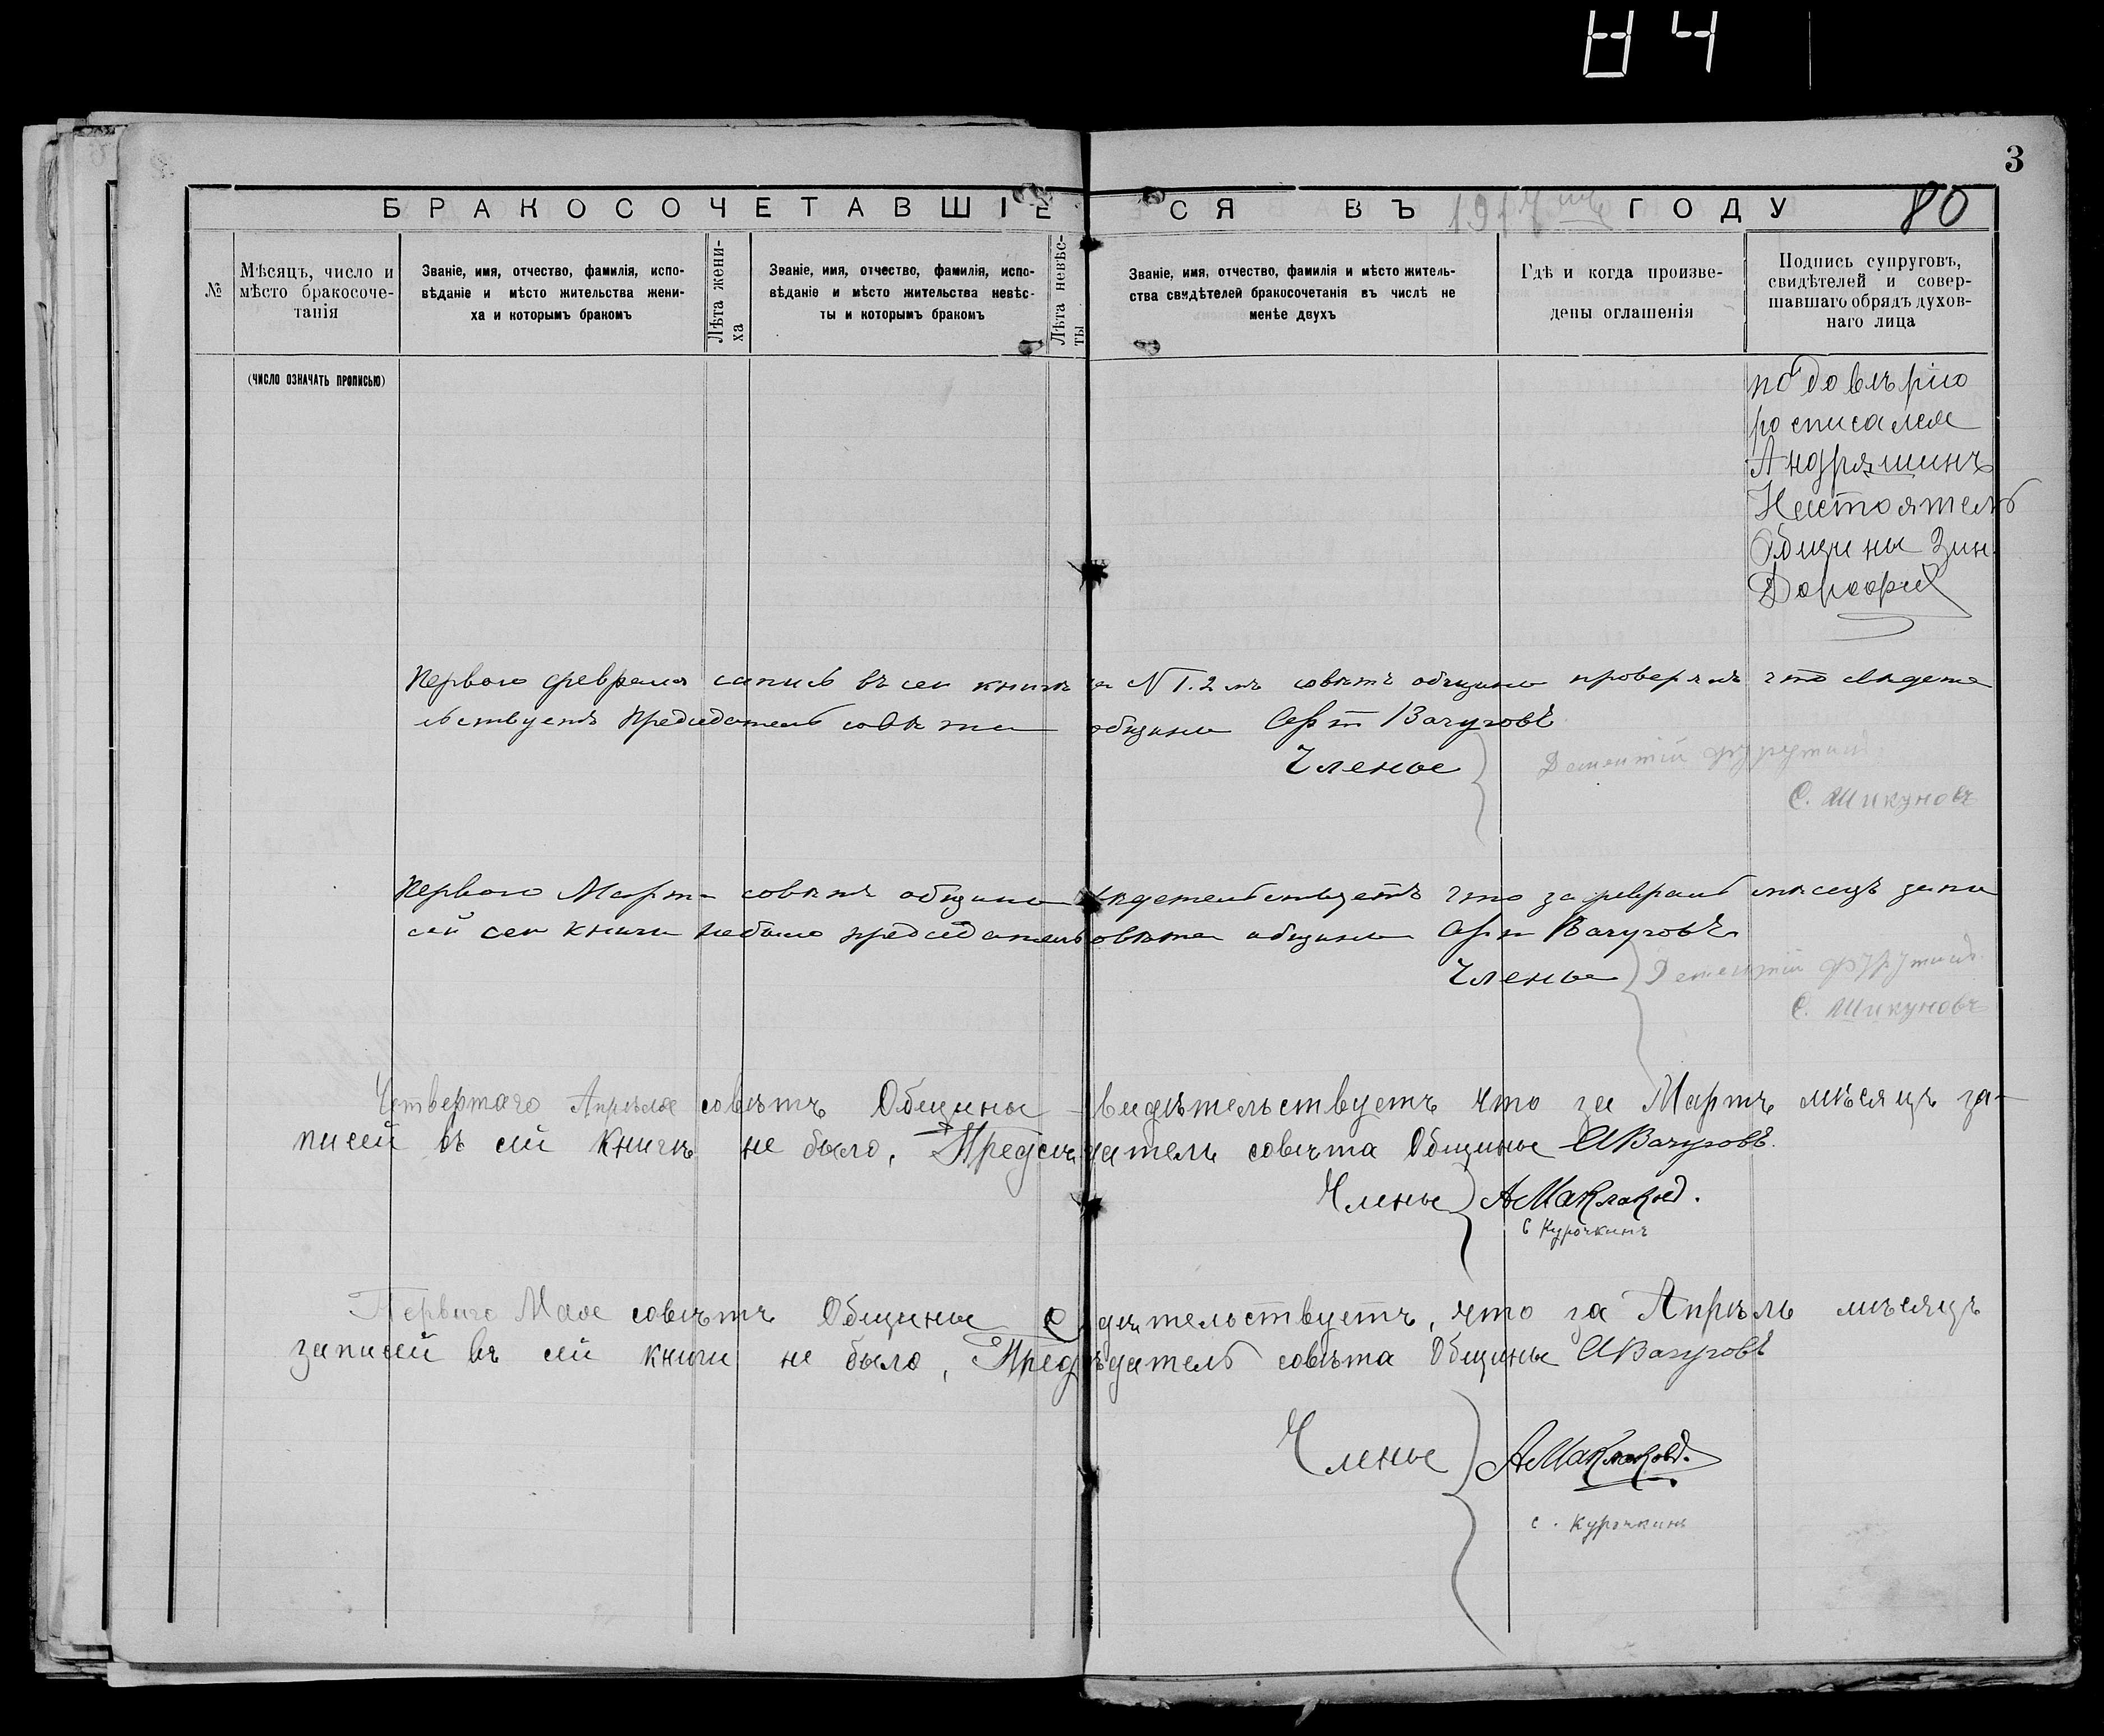 3
БРАКОСОЧЕТАВШІЕСЯ ВЪ ГОДУ
80
№
Мѣсяцъ, число и
мѣсто бракосоче-
танія
Званіе, имя, отчество, фамилія, испо-
вѣданіе и мѣсто жительства жени-
ха и которымъ бракомъ
Лѣта жени-
ха
Званіе, имя, отчество, фамилія, испо-
вѣданіе и мѣсто жительства невѣс-
ты и которымъ бракомъ
Лѣта невѣс-
ты
Званіе, имя, отчество, фамилія и мѣсто житель-
ства свидѣтелей бракосочетанія въ числѣ не
менѣе двухъ
Гдѣ и когда произве-
дены оглашенія
Подпись супруговъ,
свидѣтелей и совер-
шавшаго обрядъ духов-
наго лица
(число означать прописью)
по довѣрію
росписался
Андряшинъ
Настоятель
Общины Зин.
Первого февраля въ сей книги № 1. 2 совѣтъ общины проверялъ что
председатель совѣта общины Вачуговъ
Члены
Дементій
С. Шикуновъ
Первого Март совѣтъ общины что за месецъ запи
сей сей книги небыло председатель совѣта общины Вачуговъ
Члены Дементій
С. Шикуновъ
Четвертаго Апрѣля совѣтъ Общины свидѣтельствуетъ что за Мартъ мѣсяцъ за-
писей въ сій книгѣ не было, Предсѣдатель совѣта Общины А Вачуговъ.
Члены А Маклаковъ.
С Курочкинъ
Перваго Мая совѣтъ Общины свидѣтельствуетъ, что за Апрѣль мѣсяцъ
записей въ сій книги не было, Предсѣдатель совѣта Общины А Вачуговъ
Члены А Маклаковъ.
С. Курочкинъ